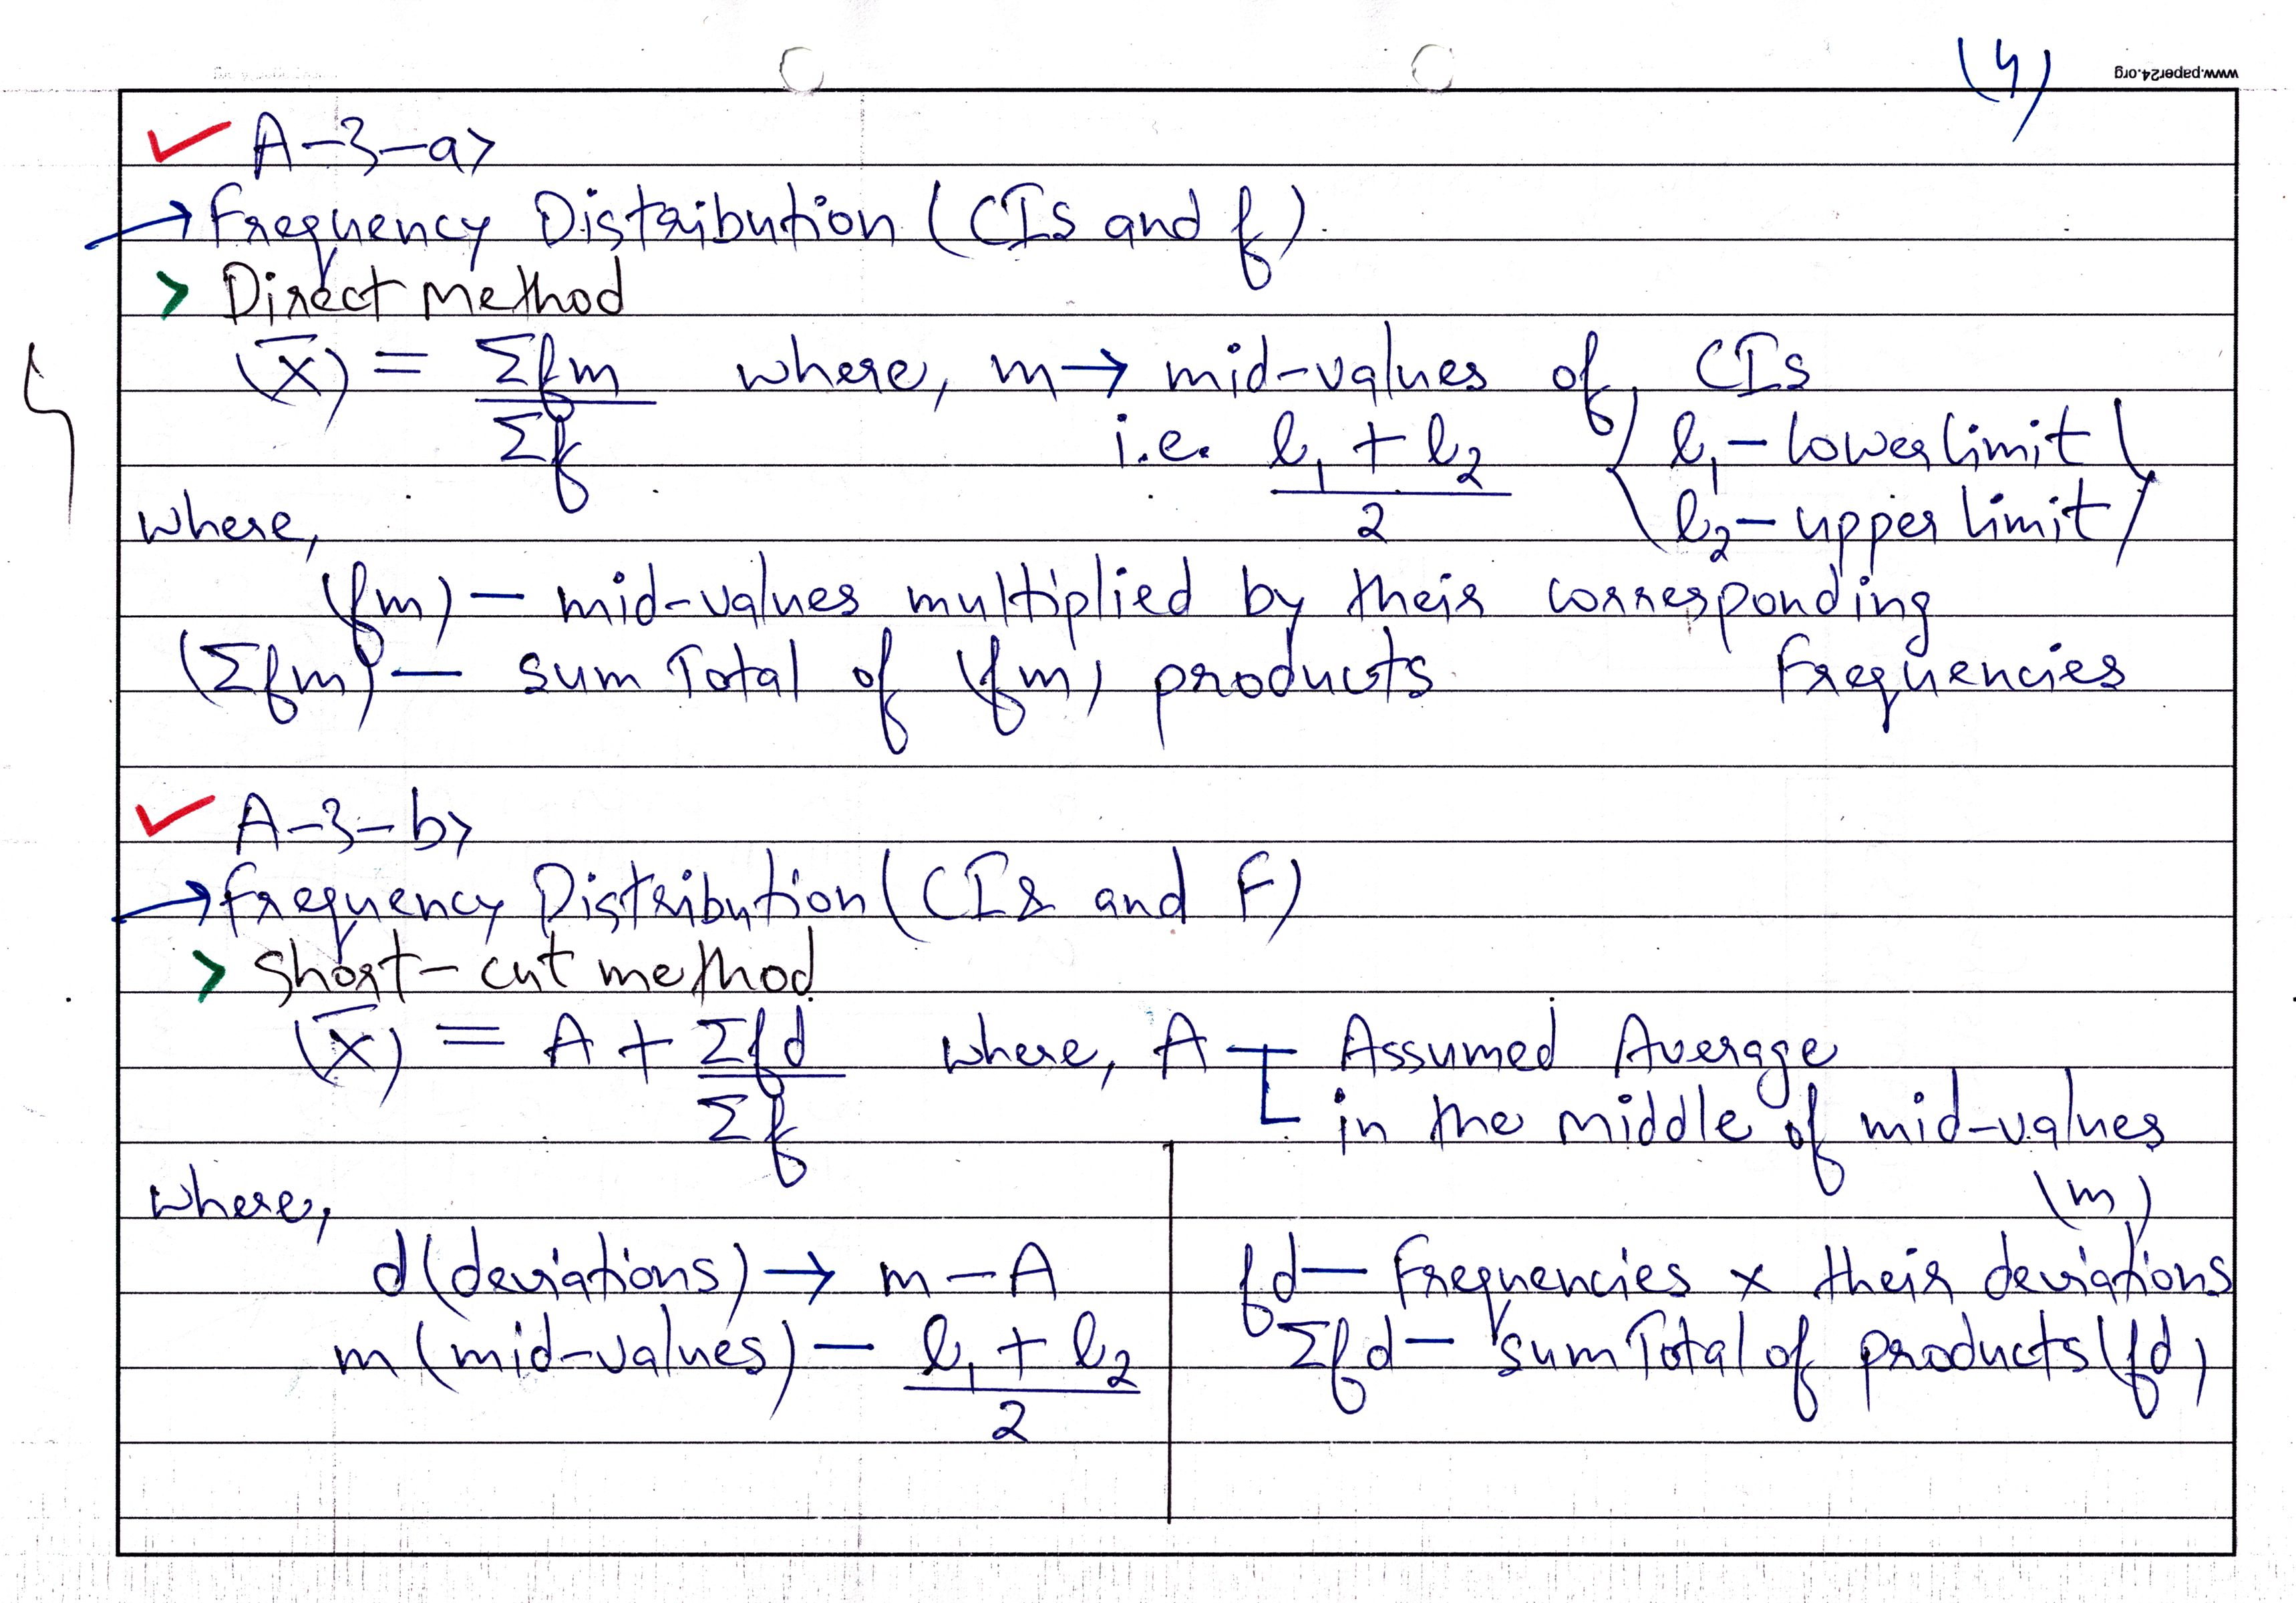 (4)
www.paper24.org
✓ A-3-a>
→ Frequency Distribution (CIs and f)
> Direct Method
(x̄) = Σfm / Σf where, m → mid-values of CIs
i.e. l₁ + l₂ / 2 (l₁ - lower limit
l₂ - upper limit)
where,
(fm) — mid-values multiplied by their corresponding
Frequencies
(Σfm) — sum Total of (fm) products
✓ A-3-b>
→ Frequency Distribution (CIs and F)
> Short-cut method
(x̄) = A + Σfd / Σf where, A — Assumed Average
in the middle of mid-values
(m)
where,
d (deviations) → m - A
m (mid-values) — l₁ + l₂ / 2
fd — Frequencies x their deviations
Σfd — sum Total of products (fd)